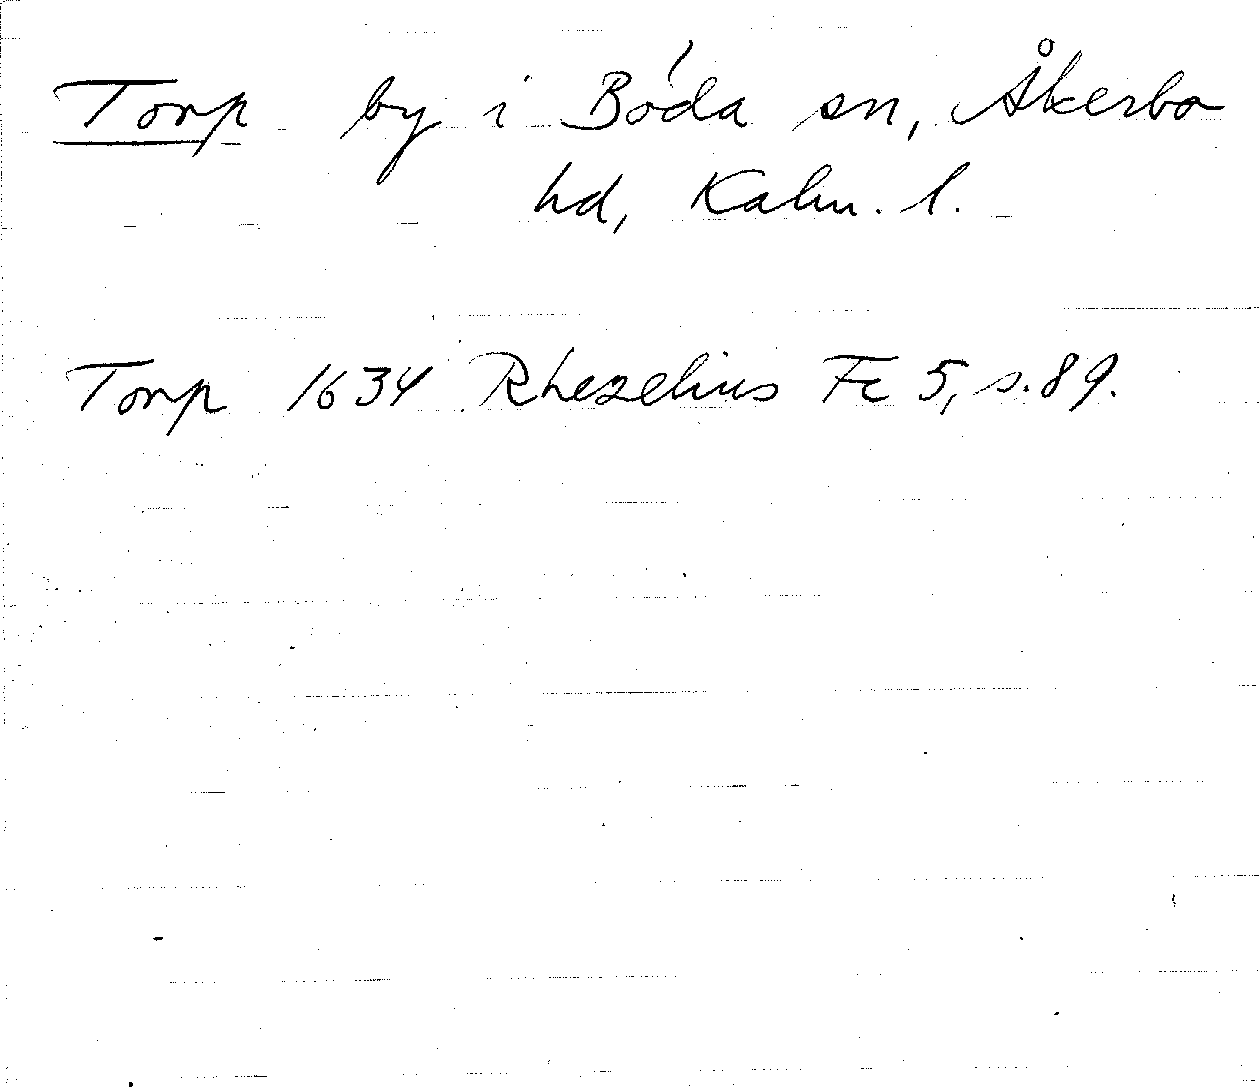 Torp by i Böda sn, Åkerbo
hd, Kalm. l.
Torp 1634 Rhezelius Fc 5, s. 89.